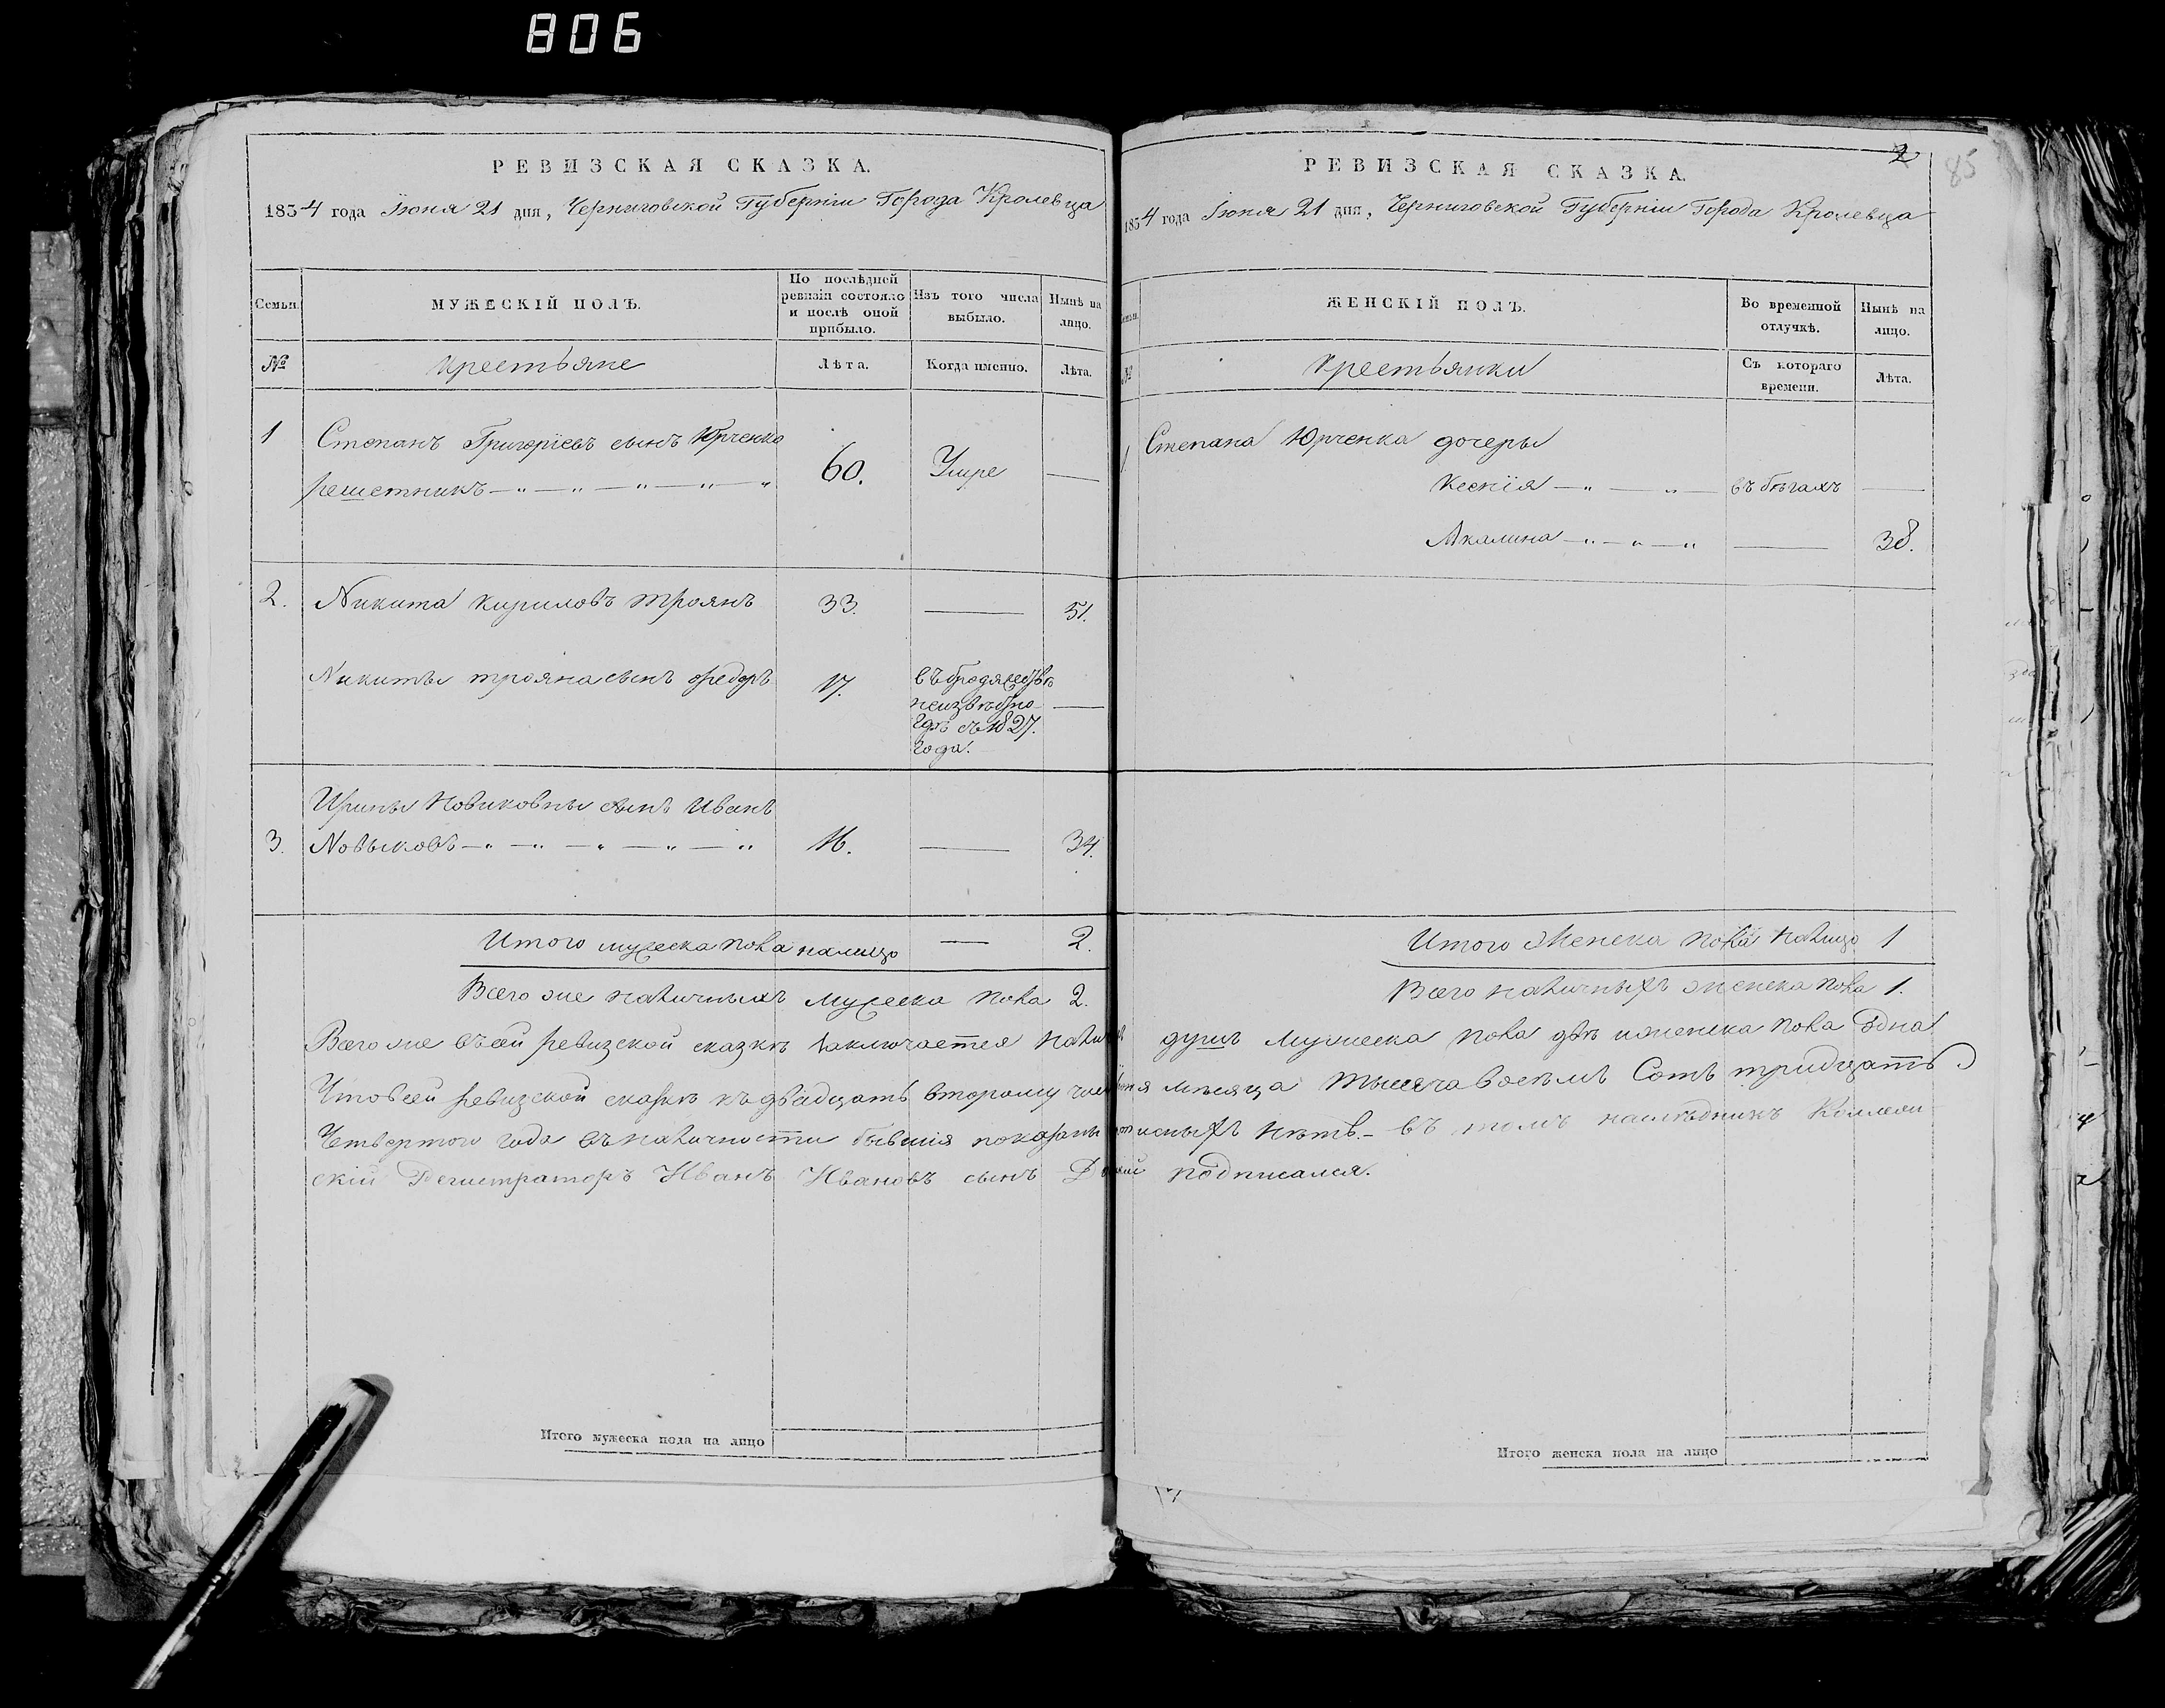 806
РЕВИЗСКАЯ СКАЗКА.
1834 года Іюня 21 дня, Черниговской Губерніи Города Кролевца
Семьи.
МУЖЕСКІЙ ПОЛЪ.
По послѣдней ревизіи состояло и послѣ оной прибыло.
Изъ того числа выбыло.
Нынѣ на лицо.
№
крестьяне
Лѣта.
Когда именно.
Лѣта.
1 Степанъ Григоріевъ сынъ Юрченко
решетникъ 60. Умре —
2. Никита Кириловъ Троянъ 33. — 51.
Никиты трояна сынъ Федоръ 17. въ бродяжествѣ
неизвѣстно —
гдѣ съ 1827.
года.
Ирины Новиковны сынъ Иванъ
3. Новыковъ 16. — 34.
Итого мужеска пола налицо — 2.
Всего же наличныхъ мужеска пола 2.
Всего же въ сей ревизской сказкѣ заключается
Что в сей ревизской сказкѣ къ двадцать второму
Четвертого года въ наличности бывшія показаны
скій Регистраторъ Иванъ Ивановъ сынъ
Итого мужеска пола на лицо
2
85
РЕВИЗСКАЯ СКАЗКА.
1834 года Іюня 21 дня, Черниговской Губерніи Города Кролевца
ЖЕНСКІЙ ПОЛЪ.
Во временной отлучкѣ.
Нынѣ на лицо.
№
Крестьянки
Съ котораго времени.
Лѣта.
1 Степана Юрченка дочеры
Ксенія въ бѣгахъ —
Акалина — 38.
Итого Женска пола налицо 1
Всего наличныхъ женска пола 1.
душъ мужеска пола двѣ и женска пола одна
мѣсяца тысяча восемъ Сотъ тридцать
нѣтъ. — въ томъ наслѣдникъ Коллеи
подписался.
Итого женска пола на лицо